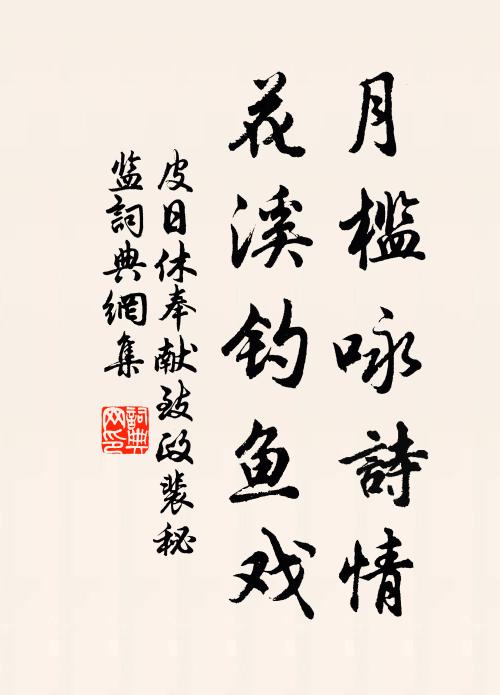 月槛咏詩情
花溪钓鱼戏
皮日休奉献致政裴秘
监詞典網集
詞典
网印